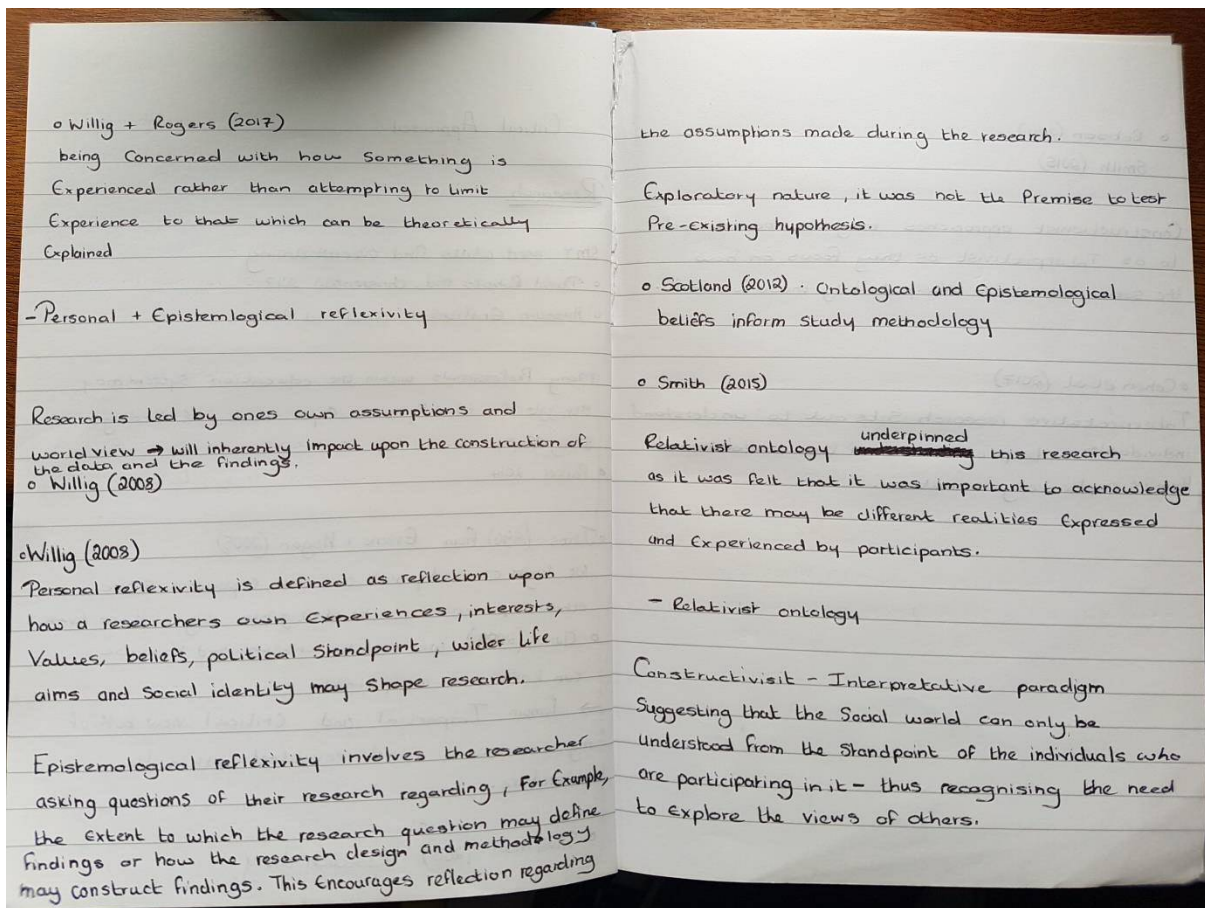 o Willig + Rogers (2017)
being Concerned with how Something is
Experienced rather than attempting to Limit
Experience to that which can be theoretically
Explained
- Personal + Epistemlogical reflexivity
Research is Led by ones own assumptions and
world view → will inherently impact upon the construction of
the data and the findings.
o Willig (2008)
o Willig (2008)
Personal reflexivity is defined as reflection upon
how a researchers own Experiences, interests,
Values, beliefs, political Standpoint, wider Life
aims and Social identity may Shape research.
Epistemological reflexivity involves the researcher
asking questions of their research regarding, For Example,
the Extent to which the research question may define
findings or how the research design and methodology
may construct findings. This Encourages reflection regarding
the assumptions made during the research.
Exploratory nature, it was not the Premise to test
Pre-Existing hypothesis.
o Scotland (2012) . Ontological and Epistemological
beliefs inform study methodology
o Smith (2015)
Relativist ontology underpinned this research
as it was felt that it was important to acknowledge
that there may be different realities Expressed
and Experienced by participants.
- Relativist ontology
Constructivisit - Interpretative paradigm
Suggesting that the Social world can only be
understood from the Standpoint of the individuals who
are participating in it - thus recognising the need
to Explore the views of others.